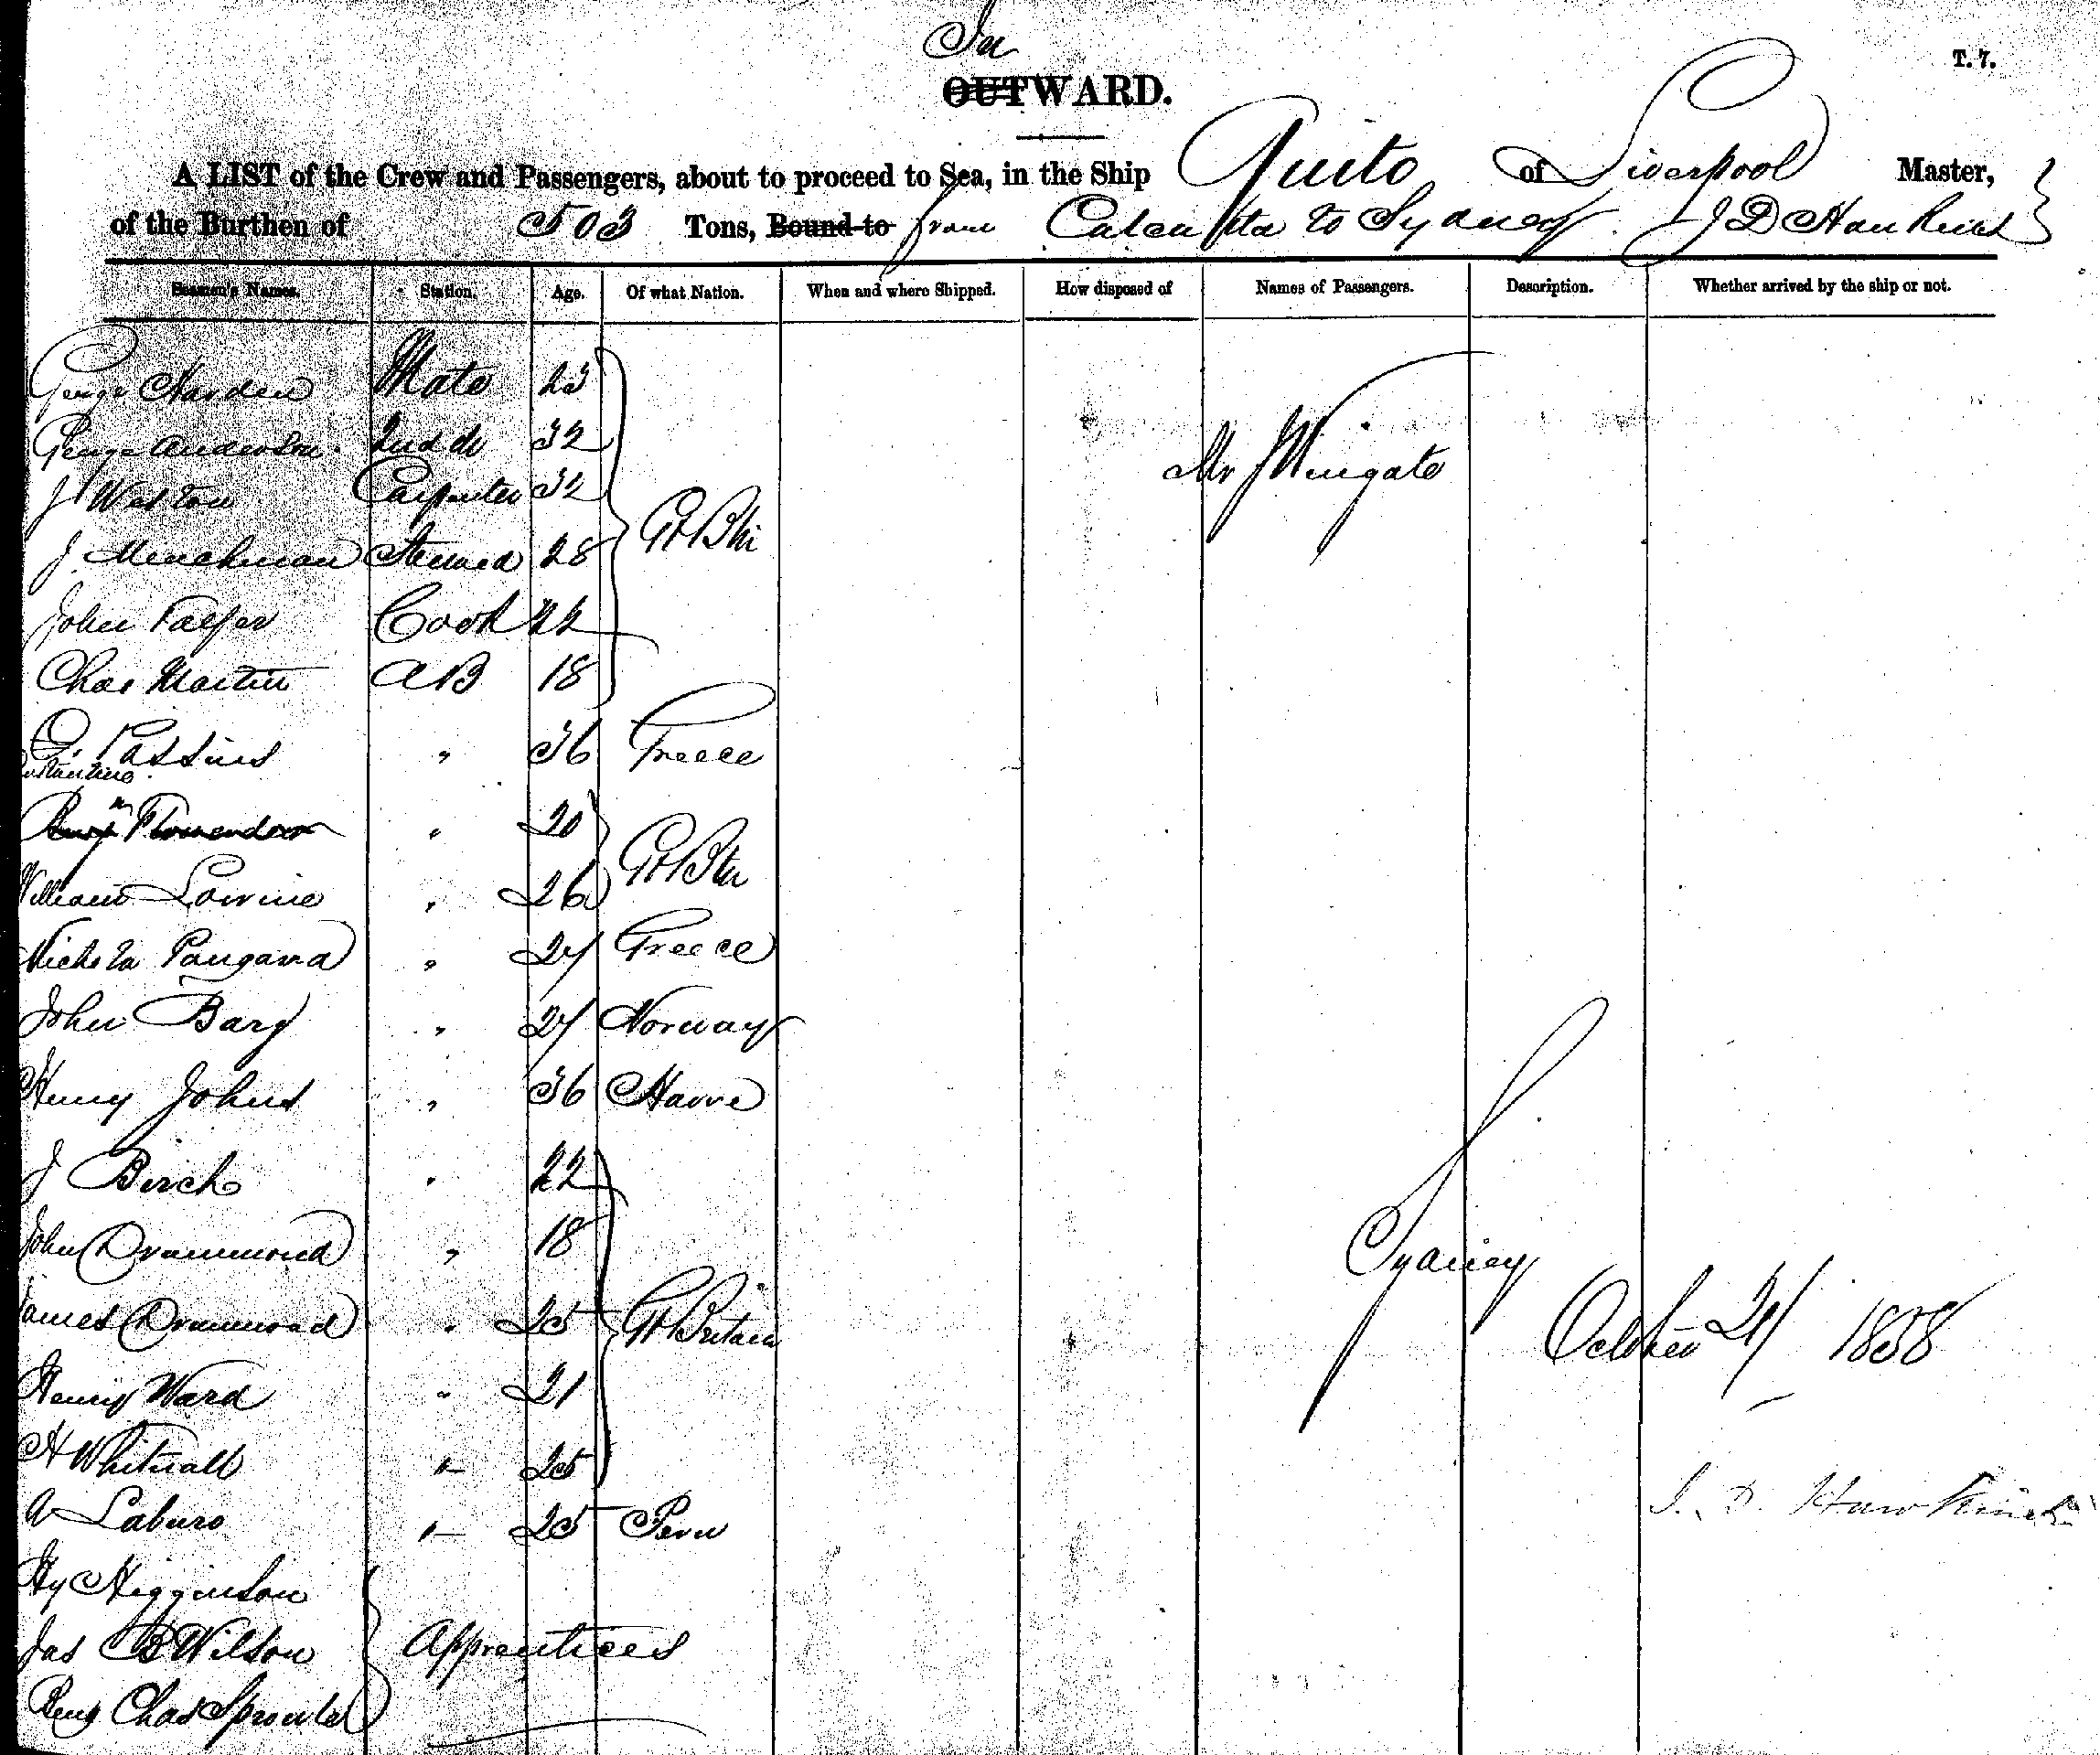 In
T. 7.
OUTWARD.
A LIST of the Crew and Passengers, about to proceed to Sea, in the Ship Quito of Liverpool Master,
of the Burthen of 503 Tons, Bound to from Calcutta to Sydney J D Hawkins
Seamen's Names. Station. Age. Of what Nation. When and where Shipped. How disposed of Names of Passengers. Description. Whether arrived by the ship or not.
George Harden Mate 23
George Anderson 2nd do 32
J Weston Carpenter 32 Mr J Wingate
J. Menchman Steward 28 Gt Btn
John 22 Cook
Chas Martin AB 18
C. Passins " 36 Greece
Constantine
" 20
William Lowrie " 26 Gt Btn
Nichola Pangana " 27 Greece
John Barg " 27 Norway
Henry Johns " 36 Havre
J Birch " 22
John Drummond " 18 Sydney
James Drummond " 25 Gt Britain October 21 1858
Henry Ward " 21
H Whitnall " 25
A Laburo " 25 Peru J. D. Hawkins
Hy Higginson
Jas B Wilson Apprentices
Benj Chas Sproules